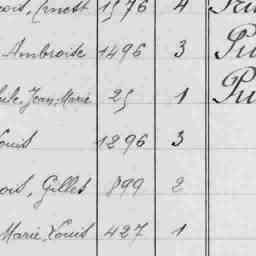 Ernest 1576 4
Ambroise 1496 3 Pu
Jean-Marie 25 1 Pu
Louis 1296 3
Gilles 899 2
Marie-Louis 427 1